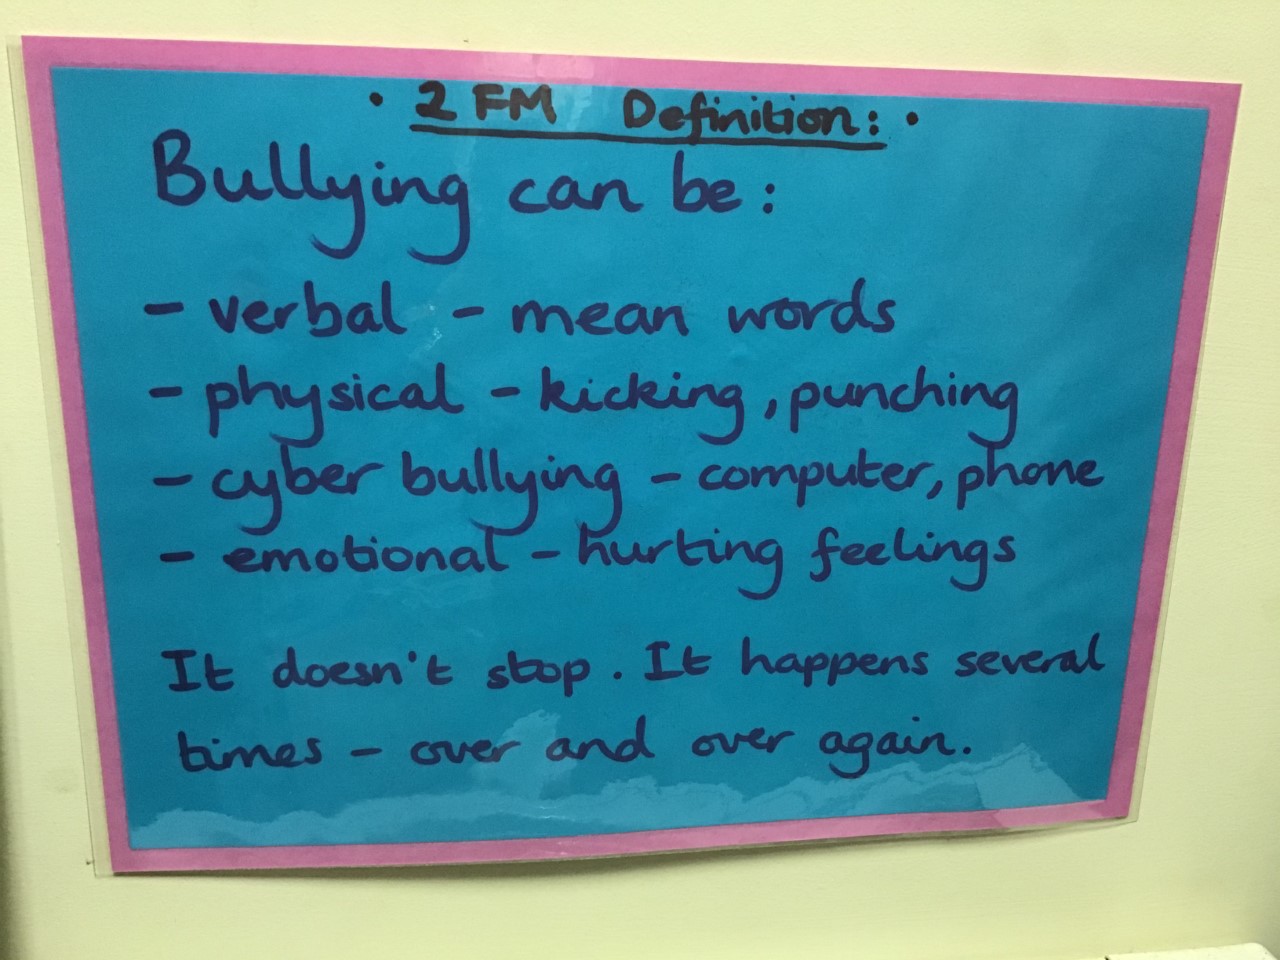 • 2 FM Definition: •
Bullying can be:
- verbal - mean words
- physical - kicking, punching
- cyber bullying - computer, phone
- emotional - hurting feelings
It doesn't stop. It happens several
times - over and over again.